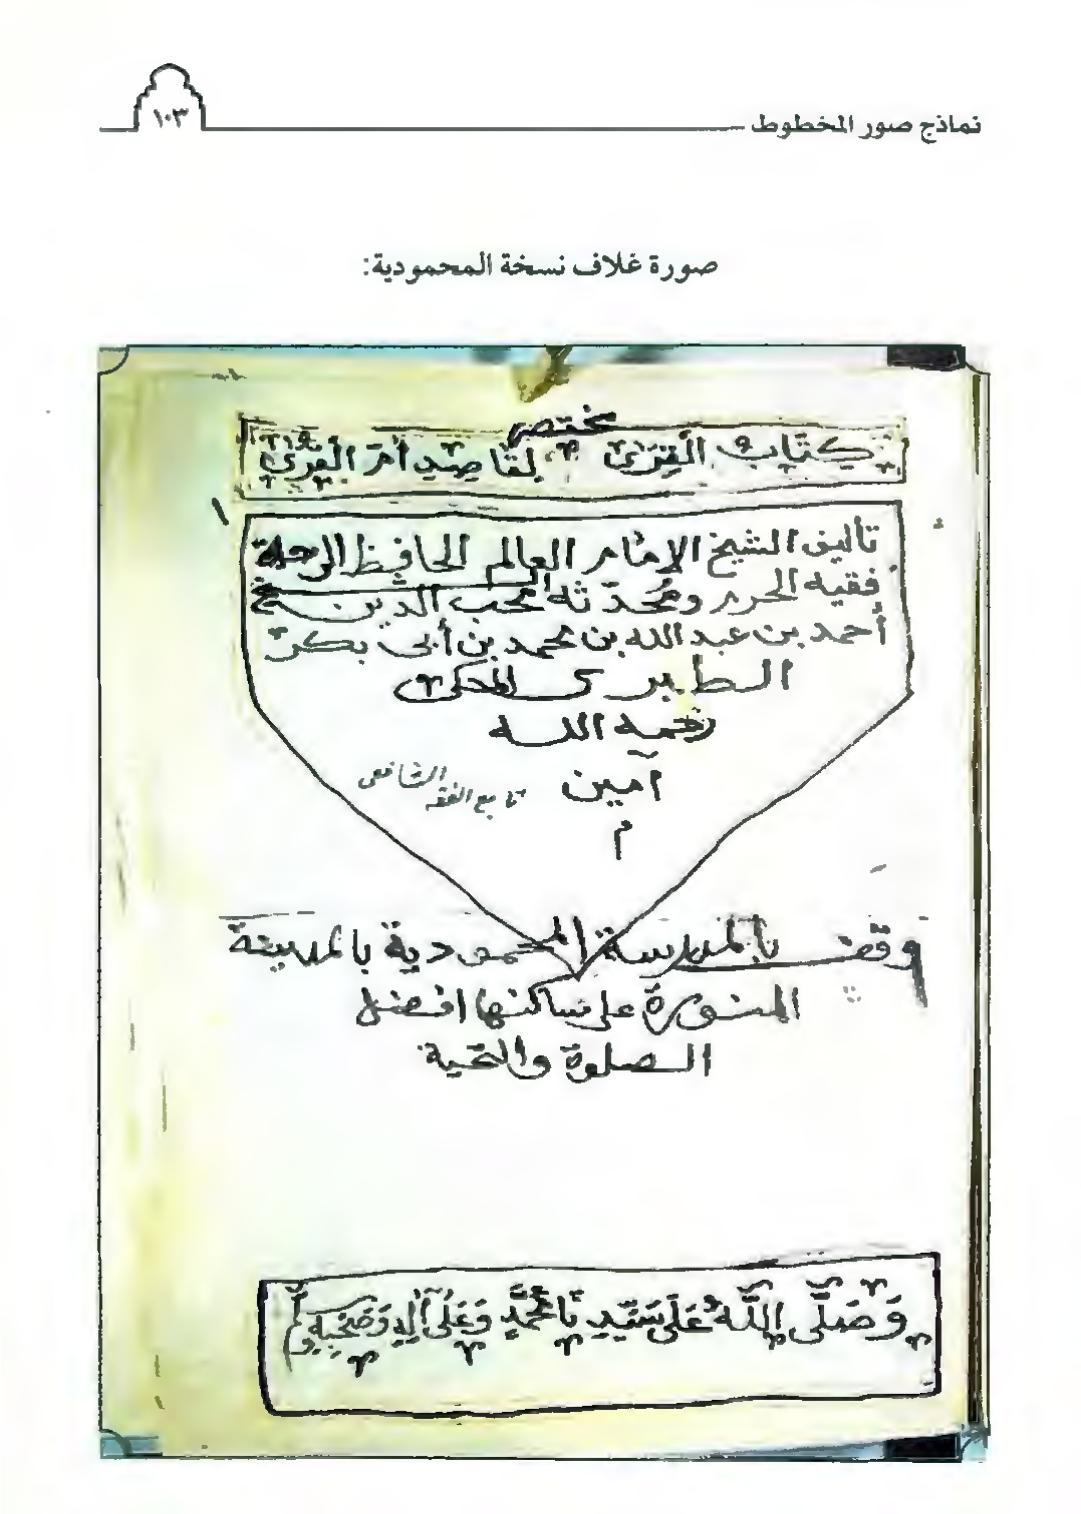 نماذج صور المخطوط
١٠٣
صورة غلاف نسخة المحمودية:
مختصر
كِتَاب القِرَى لمقاصد أم القرى
تأليف الشيخ الإمام العالم الحافظ الرحلة
فقيه الحرم ومحدثه محب الدين
أحمد بن عبد الله بن محمد بن أبي بكر
الطبري المكي
رحمه الله
آمين
تابع الفقه الشافعي
م
وقف بالمدرسة المحمودية بالمدينة
المنورة على ساكنها افضل
الصلوة والتحية
وَصَلَّى اللَّهُ عَلَى سَيِّدِنَا مُحَمَّدٍ وَعَلَى آلِهِ وَصَحْبِهِ وسلم